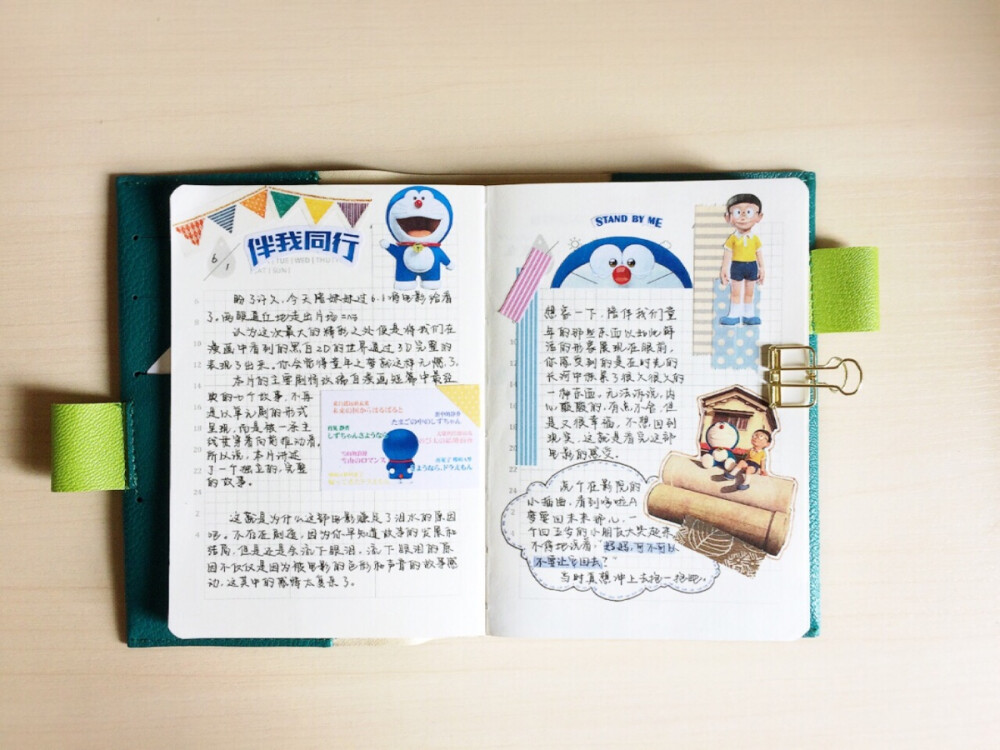 伴我同行
6
1
盼了许久，今天陪妹妹过6.1将电影给看
了。两眼通红地走出片场=.=
认为这次最大的精彩之处便是将我们在
漫画中看到的黑白2D的世界通过3D完整的
表现了出来。你会觉得童年之梦就这样无憾了。
本片的主要剧情改编自漫画短篇中最经
典的七个故事，不再
是以单元剧的形式
呈现，而是被一条主
线贯穿着向前推动着。
所以说，本片讲述
了一个独立的，完整
的故事。
未来の国からはるばると
たまごの中のしずちゃん
しずちゃんさようなら
雪山のロマンス
さようなら、ドラえもん
这就是为什么这部电影赚足了泪水的原因
吧。不存在剧透，因为你早知道故事的发展和
结局，但是还是会流下眼泪，流下眼泪的原
因不仅仅是因为被电影的色彩和声音的故事感
动，这其中的感情太复杂了。
STAND BY ME
想象一下，陪伴我们童
年的那些东西以如此鲜
活的形象展现在眼前，
你感受到的是在时光的
长河中积累了很久很久的
一种东西，无法诉说，内
心酸酸的，有点不舍，但
是又很幸福，不想回到
现实，这就是看完这部
电影的感受。
说个在影院的
小插曲，看到哆啦A
梦要回未来那儿，一
个四五岁的小朋友大哭起来，
不停地说着，“妈妈，可不可以
不要让它回去？
当时真想冲上去抱一抱吧。